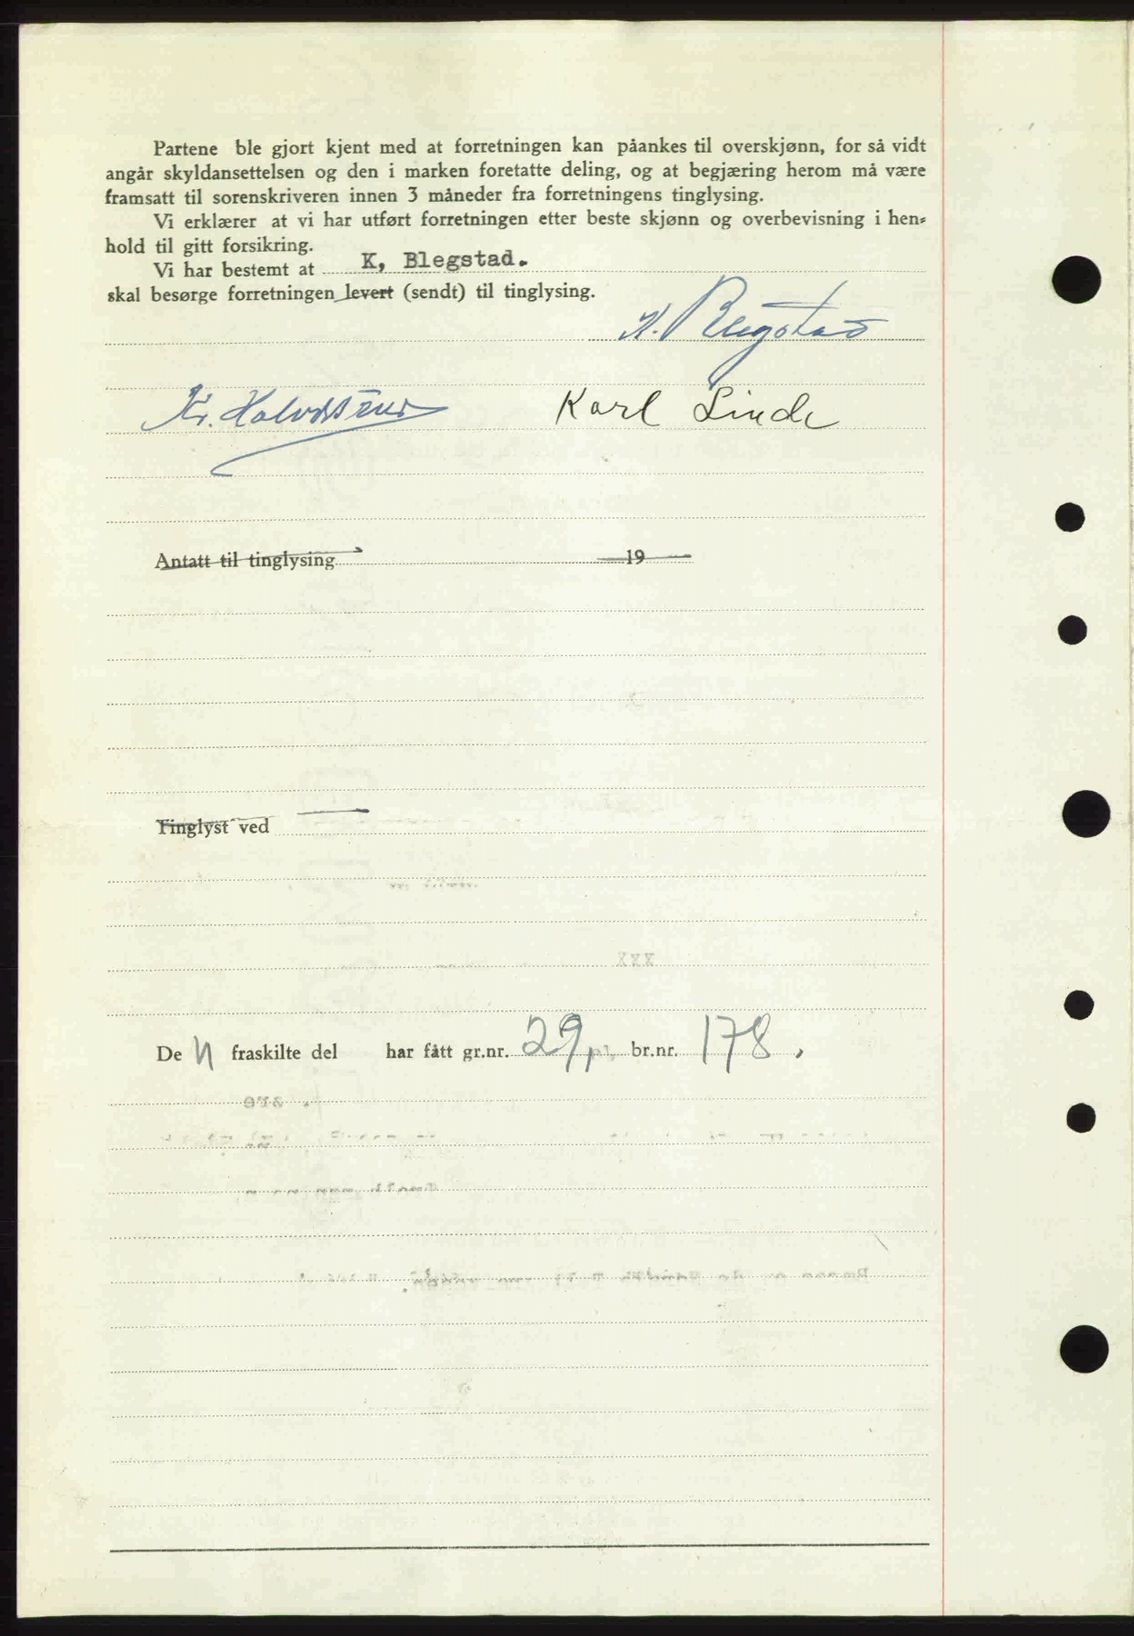 Partene ble gjort kjent med at forretningen kan påankes til overskjønn, for så vidt
angår skyldansettelsen og den i marken foretatte deling, og at begjæring herom må være
framsatt til sorenskriveren innen 3 måneder fra forretningens tinglysing.
Vi erklærer at vi har utført forretningen etter beste skjønn og overbevisning i hen-
hold til gitt forsikring.
Vi har bestemt at K, Blegstad.
skal besørge forretningen levert (sendt) til tinglysing.
K. Blegstad
Kr. Halvorsen Karl Linde
Antatt til tinglysing 19
Tinglyst ved
De n fraskilte del har fått gr.nr. 29, br.nr. 178,